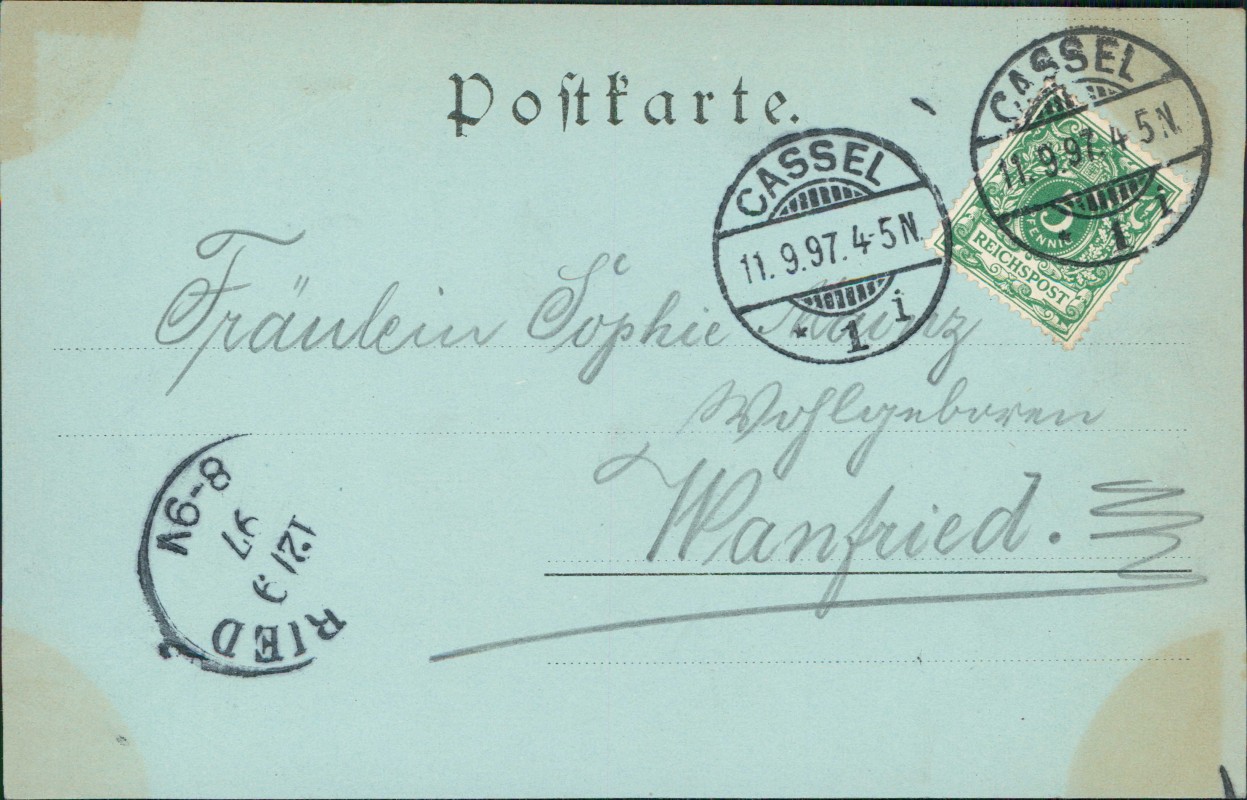 Postkarte.
CASSEL
11.9.97.4-5N.
* 1 i
CASSEL
11.9.97.4-5N.
* 1 i
PFENNIG
REICHSPOST
Fräulein Sophie
Wohlgeboren
Wanfried.
RIED
12 9
97
8-9V